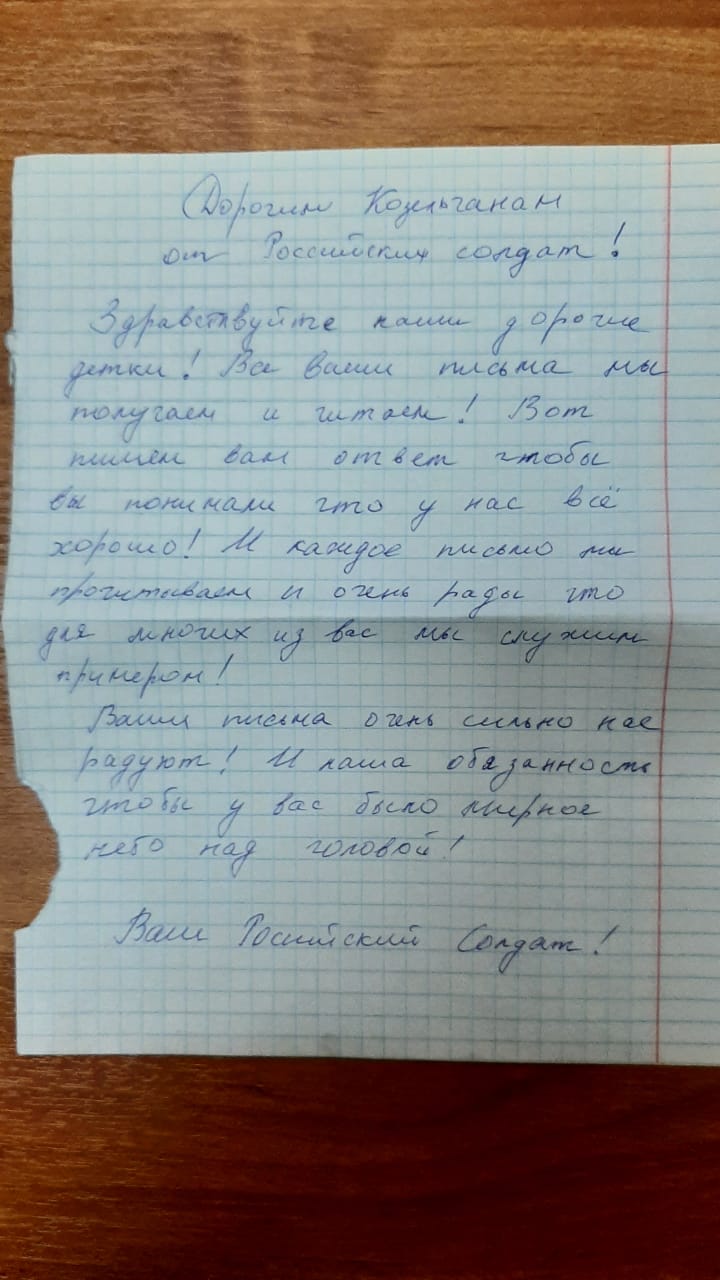 Дорогим Козельчанам
от Российских солдат!
Здравствуйте наши дорогие
детки! Все ваши письма мы
получаем и читаем! Вот
пишем вам ответ чтобы
вы понимали что у нас всё
хорошо! И каждое письмо мы
прочитываем и очень рады что
для многих из вас мы служим
примером!
Ваши письма очень сильно нас
радуют! И наша обязанность
чтобы у вас было мирное
небо над головой!
Ваш Российский Солдат!